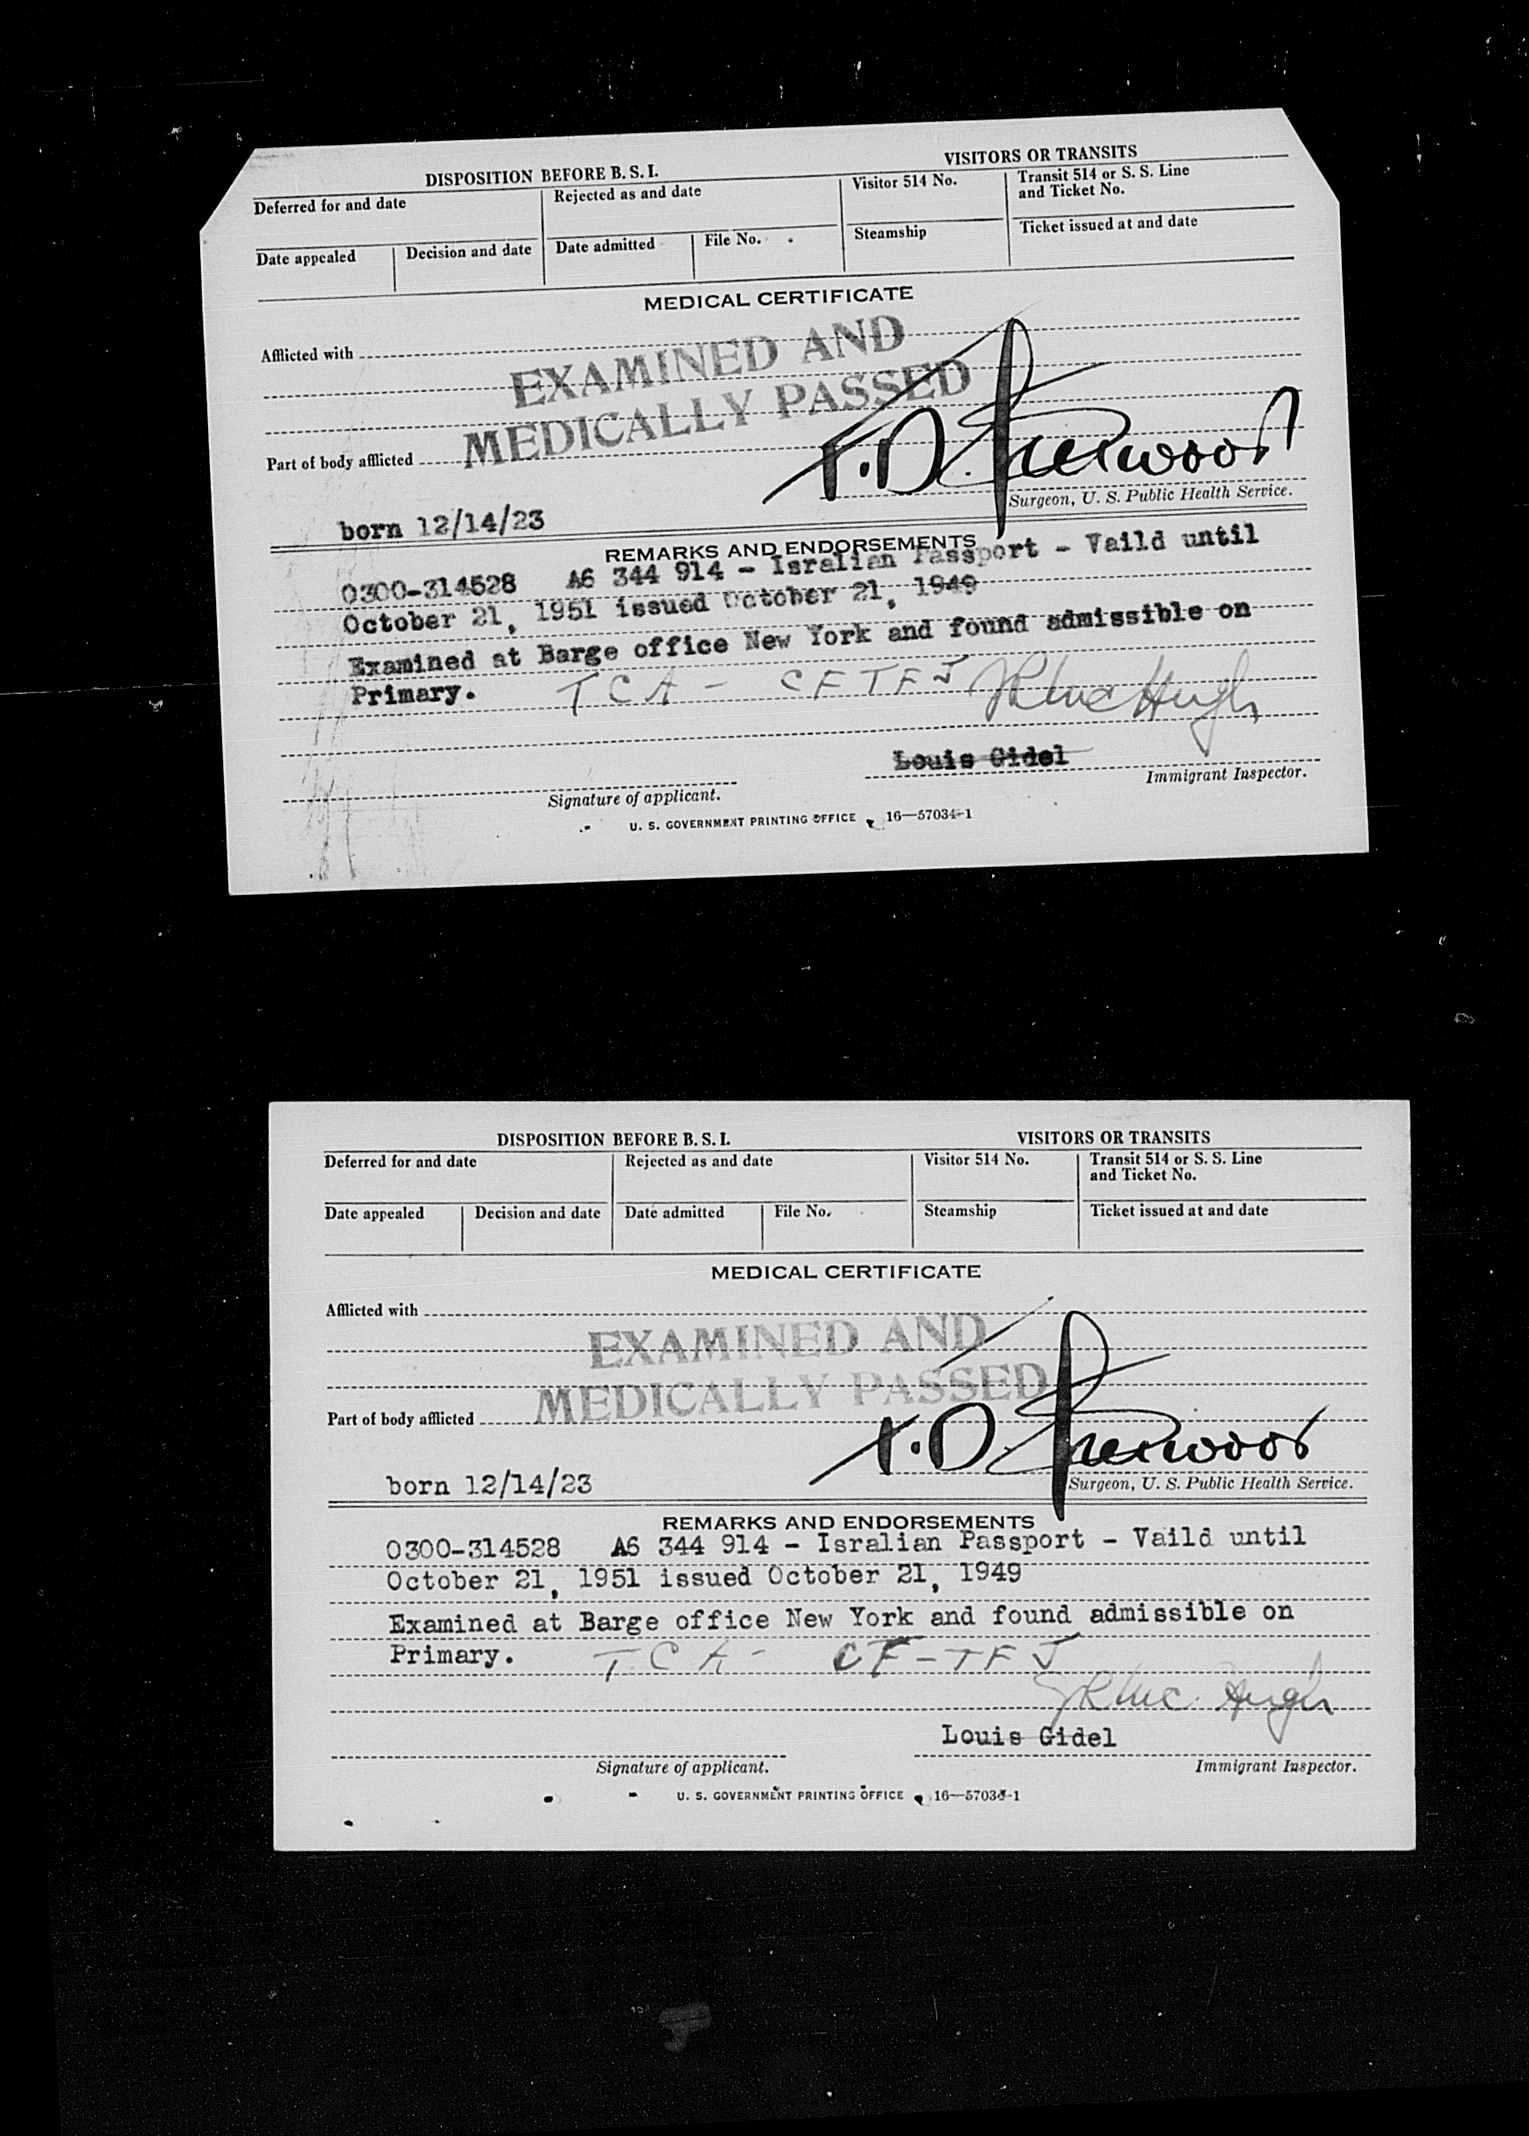 DISPOSITION BEFORE B. S. I.
VISITORS OR TRANSITS
Deferred for and date
Rejected as and date
Visitor 514 No.
Transit 514 or S. S. Line
and Ticket No.
Date appealed
Decision and date
Date admitted
File No.
Steamship
Ticket issued at and date
MEDICAL CERTIFICATE
Afflicted with
EXAMINED AND
MEDICALLY PASSED
Part of body afflicted
T.D. Sherwood
Surgeon, U. S. Public Health Service.
born 12/14/23
REMARKS AND ENDORSEMENTS
0300-314528 A6 344 914 - Isralian Passport - Vaild until
October 21, 1951 issued October 21, 1949
Examined at Barge office New York and found admissible on
Primary. T C A - C F T F J
Louis Gidel
Signature of applicant.
Immigrant Inspector.
U. S. GOVERNMENT PRINTING OFFICE 16—57034-1
DISPOSITION BEFORE B. S. I.
VISITORS OR TRANSITS
Deferred for and date
Rejected as and date
Visitor 514 No.
Transit 514 or S. S. Line
and Ticket No.
Date appealed
Decision and date
Date admitted
File No.
Steamship
Ticket issued at and date
MEDICAL CERTIFICATE
Afflicted with
EXAMINED AND
MEDICALLY PASSED
Part of body afflicted
T.D. Sherwood
Surgeon, U. S. Public Health Service.
born 12/14/23
REMARKS AND ENDORSEMENTS
0300-314528 A6 344 914 - Isralian Passport - Vaild until
October 21, 1951 issued October 21, 1949
Examined at Barge office New York and found admissible on
Primary. T C A - C F - T F J
Louis Gidel
Signature of applicant.
Immigrant Inspector.
U. S. GOVERNMENT PRINTING OFFICE 16—57034-1